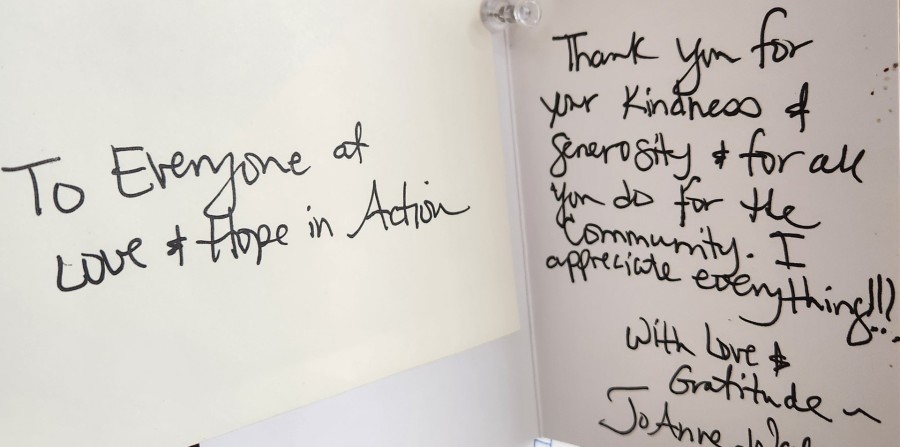 To Everyone at
Love & Hope in Action
Thank you for
your Kindness &
generosity & for all
you do for the
Community. I
appreciate everything!!!
With Love &
Gratitude ~
JoAnne